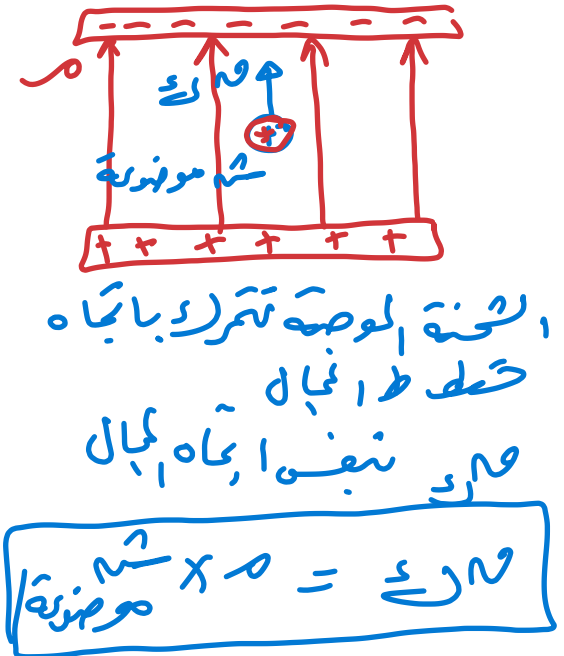 - - - - - - - -
مـ
قـ ك
+
شـ موضوعة
+ + + + + +
الشحنة الموجبة تتحرك باتجاه
خطوط المجال
قـ ك بنفس اتجاه المجال
قـ ك = مـ × شـ موضوعة